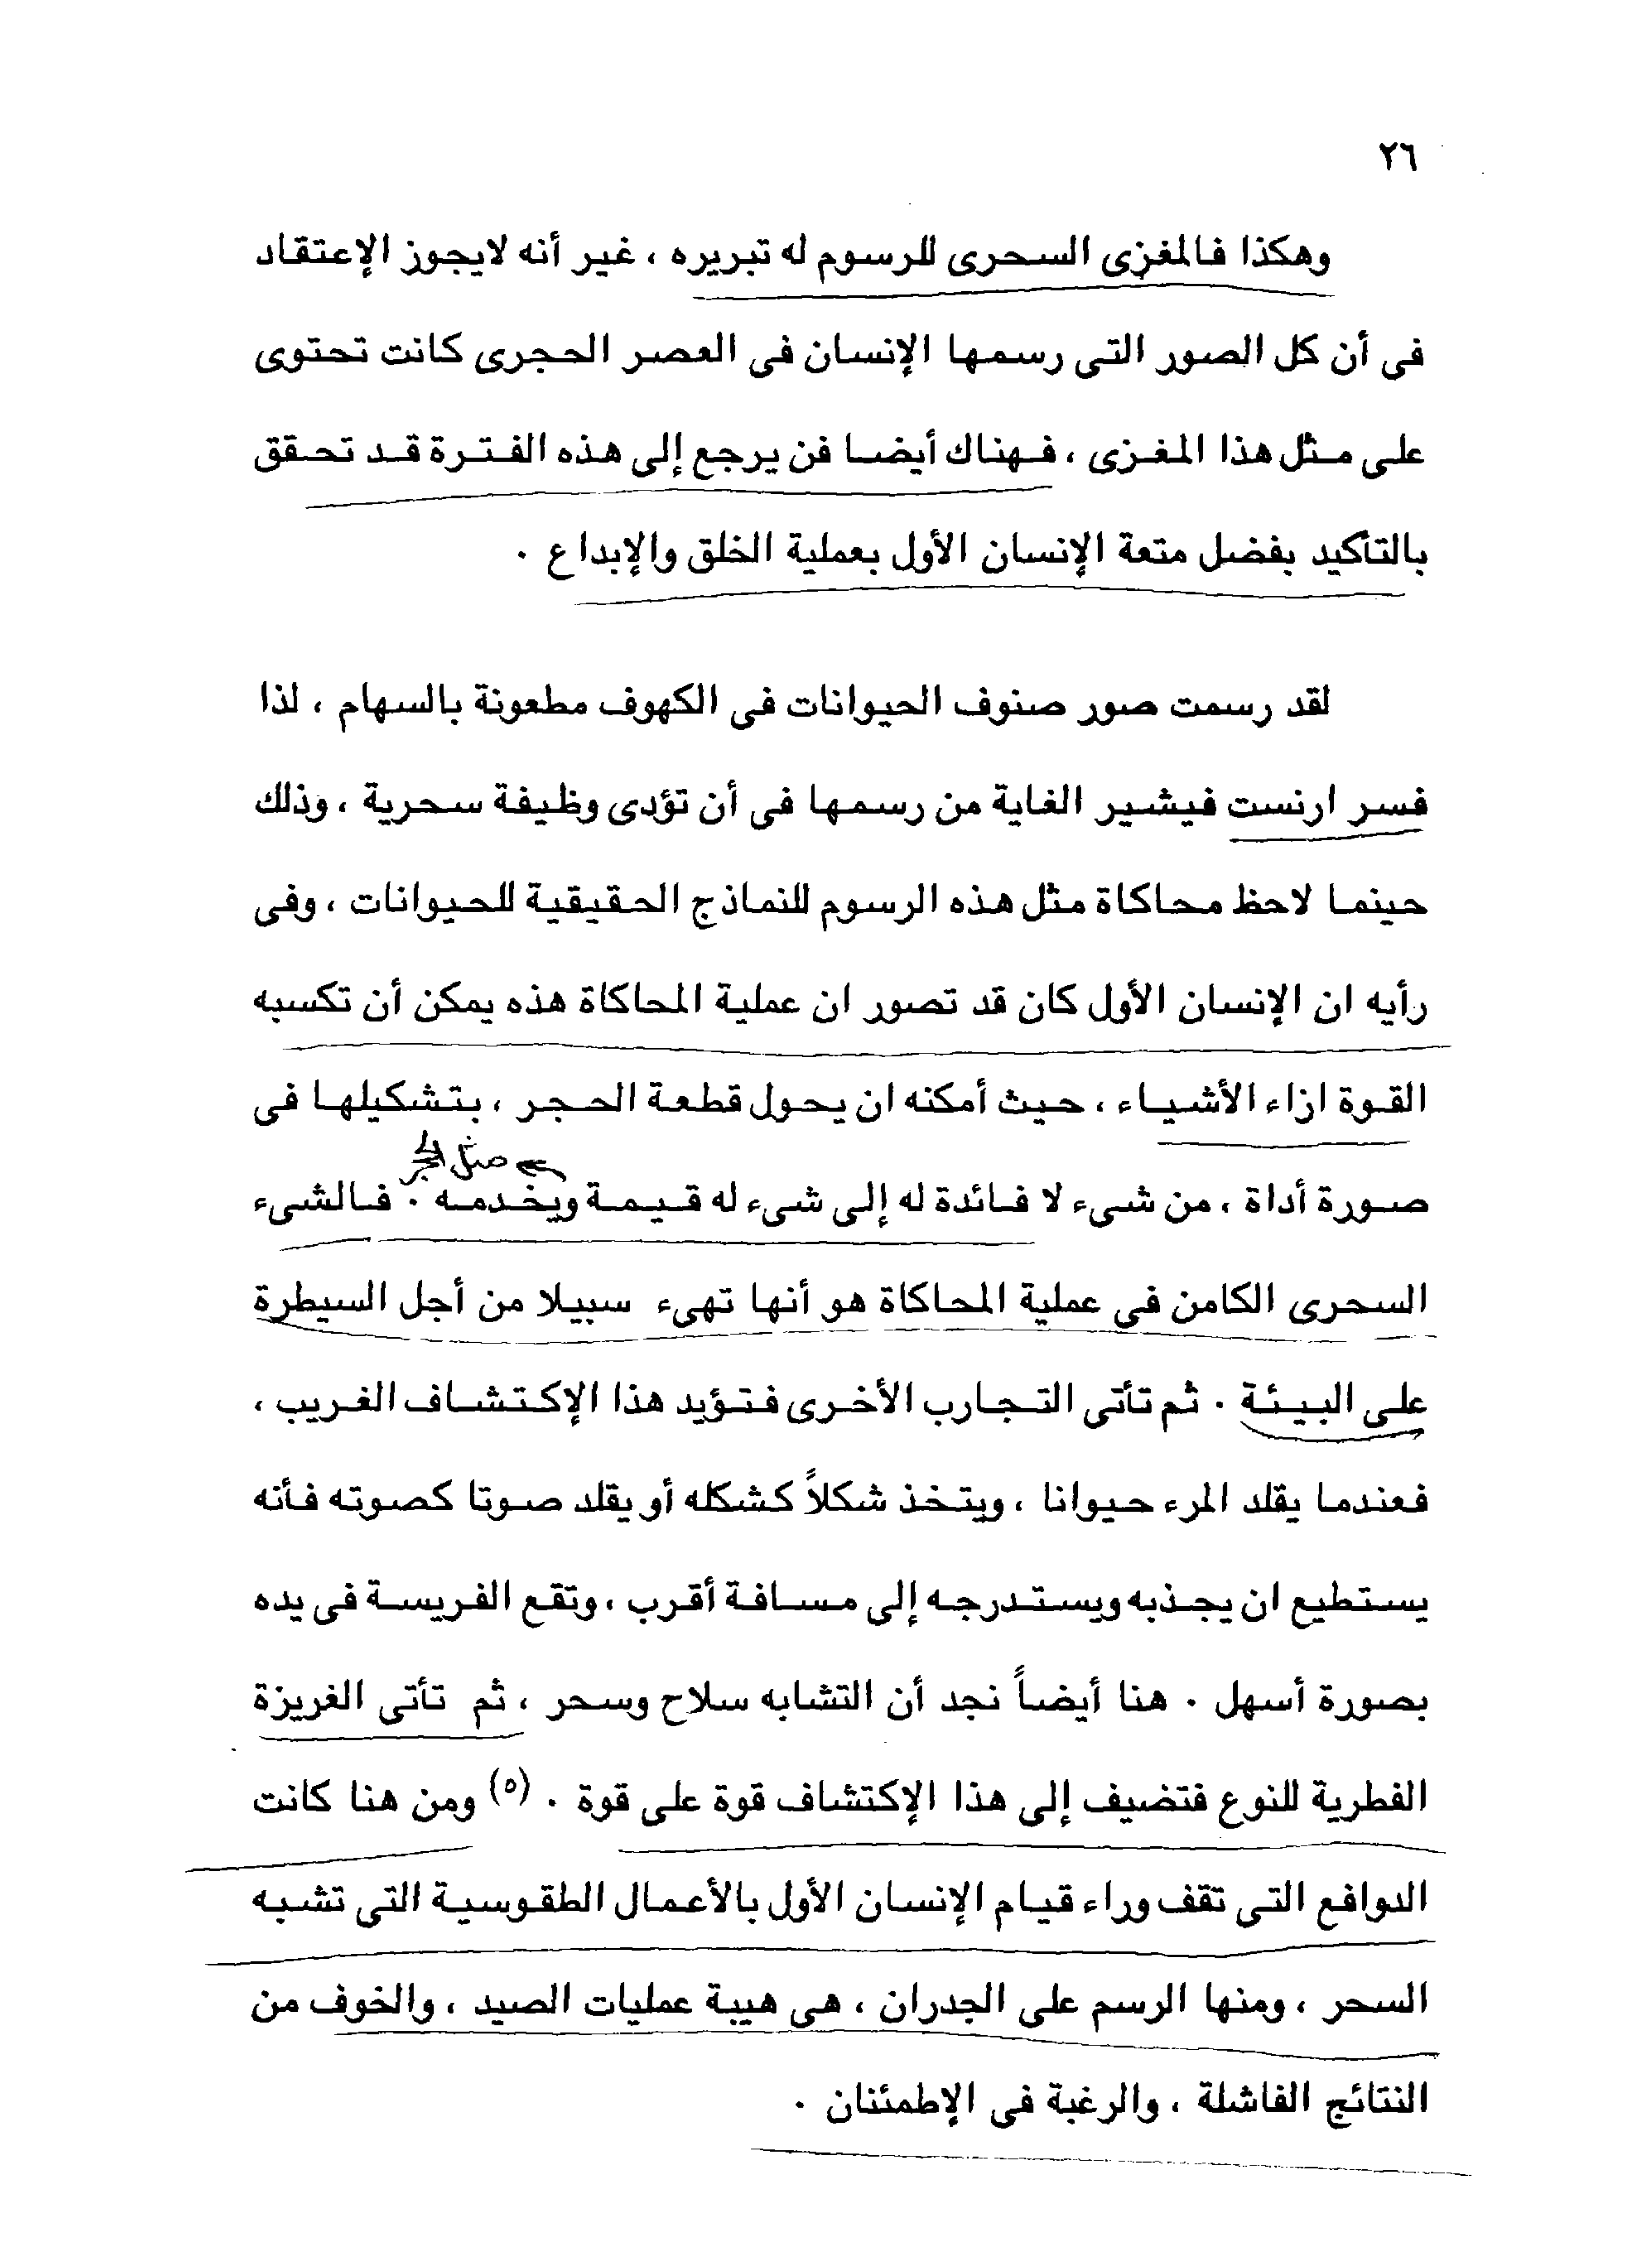 ٢٦
وهكذا فالمغزى السحرى للرسوم له تبريره ، غير أنه لايجوز الإعتقاد
فى أن كل الصور التى رسمها الإنسان فى العصر الحجرى كانت تحتوى
على مثل هذا المغزى ، فهناك أيضا فن يرجع إلى هذه الفترة قد تحقق
بالتأكيد بفضل متعة الإنسان الأول بعملية الخلق والإبداع .
لقد رسمت صور صنوف الحيوانات فى الكهوف مطعونة بالسهام ، لذا
فسر ارنست فيشير الغاية من رسمها فى أن تؤدى وظيفة سحرية ، وذلك
حينما لاحظ محاكاة مثل هذه الرسوم للنماذج الحقيقية للحيوانات ، وفى
رأيه ان الإنسان الأول كان قد تصور ان عملية المحاكاة هذه يمكن أن تكسبه
القوة ازاء الأشياء ، حيث أمكنه ان يحول قطعة الحجر ، بتشكيلها فى
صورة أداة ، من شىء لا فائدة له إلى شىء له قيمة ويخدمه . فالشىء
السحرى الكامن فى عملية المحاكاة هو أنها تهىء سبيلا من أجل السيطرة
على البيئة . ثم تأتى التجارب الأخرى فتؤيد هذا الإكتشاف الغريب ،
فعندما يقلد المرء حيوانا ، ويتخذ شكلاً كشكله أو يقلد صوتا كصوته فأنه
يستطيع ان يجذبه ويستدرجه إلى مسافة أقرب ، وتقع الفريسة فى يده
بصورة أسهل . هنا أيضاً نجد أن التشابه سلاح وسحر ، ثم تأتى الغريزة
الفطرية للنوع فتضيف إلى هذا الإكتشاف قوة على قوة . (٥) ومن هنا كانت
الدوافع التى تقف وراء قيام الإنسان الأول بالأعمال الطقوسية التى تشبه
السحر ، ومنها الرسم على الجدران ، هى هيبة عمليات الصيد ، والخوف من
النتائج الفاشلة ، والرغبة فى الإطمئنان .